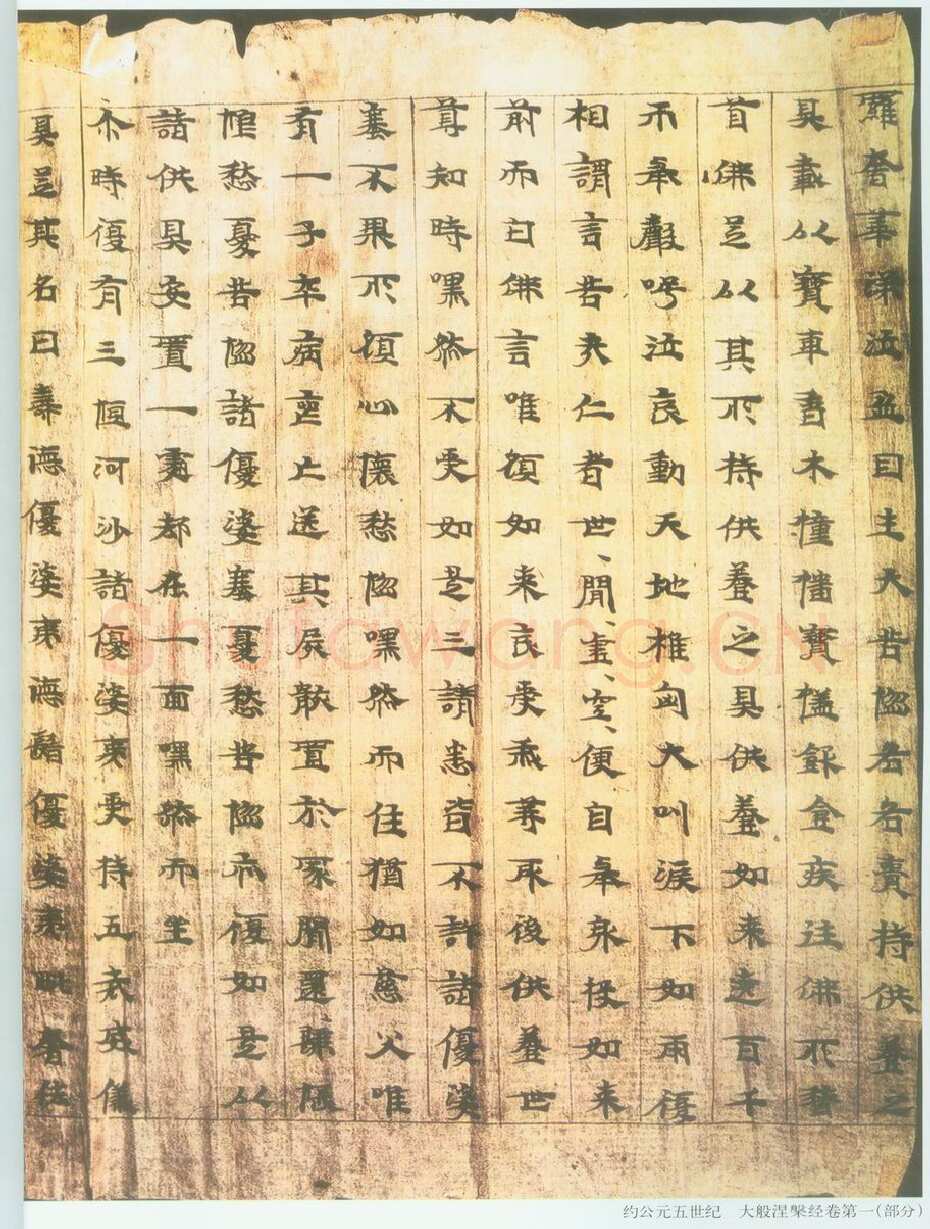 羅奢華涕泣盈目生大苦惱各各賫持供養之
具載以寶車香木幢幡寶蓋飲食疾往佛所稽
首佛足以其所持供養之具供養如來遶百千
帀舉聲号泣哀動天地椎匈大叫淚下如雨復
相謂言苦哉仁者世、間、虛、空、便自舉身投如來
前而白佛言唯願如來哀受我等冣後供養世
尊知時嘿然不受如是三請悉皆不許諸優婆
塞不果所願心懷愁惱嘿然而住猶如慈父唯
有一子卒病喪亡送其屍骸置於冢間還歸悵
恨愁憂苦惱諸優婆塞憂愁苦惱亦復如是以
諸供具安置一處却在一面嘿然而坐
尒時復有三恒河沙諸優婆夷受持五戒威儀
具足其名曰壽德優婆夷德鬘優婆夷毗舍佉
Shufawang.cn
约公元五世纪　大般涅槃经卷第一(部分)